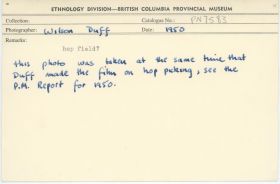 ETHNOLOGY DIVISION—BRITISH COLUMBIA PROVINCIAL MUSEUM
Collection: Catalogue No.: PN7583
Photographer: Wilson Duff Date: 1950
Remarks:
hop field?
this photo was taken at the same time that
Duff made the film on hop picking, see the
P.M. Report for 1950.